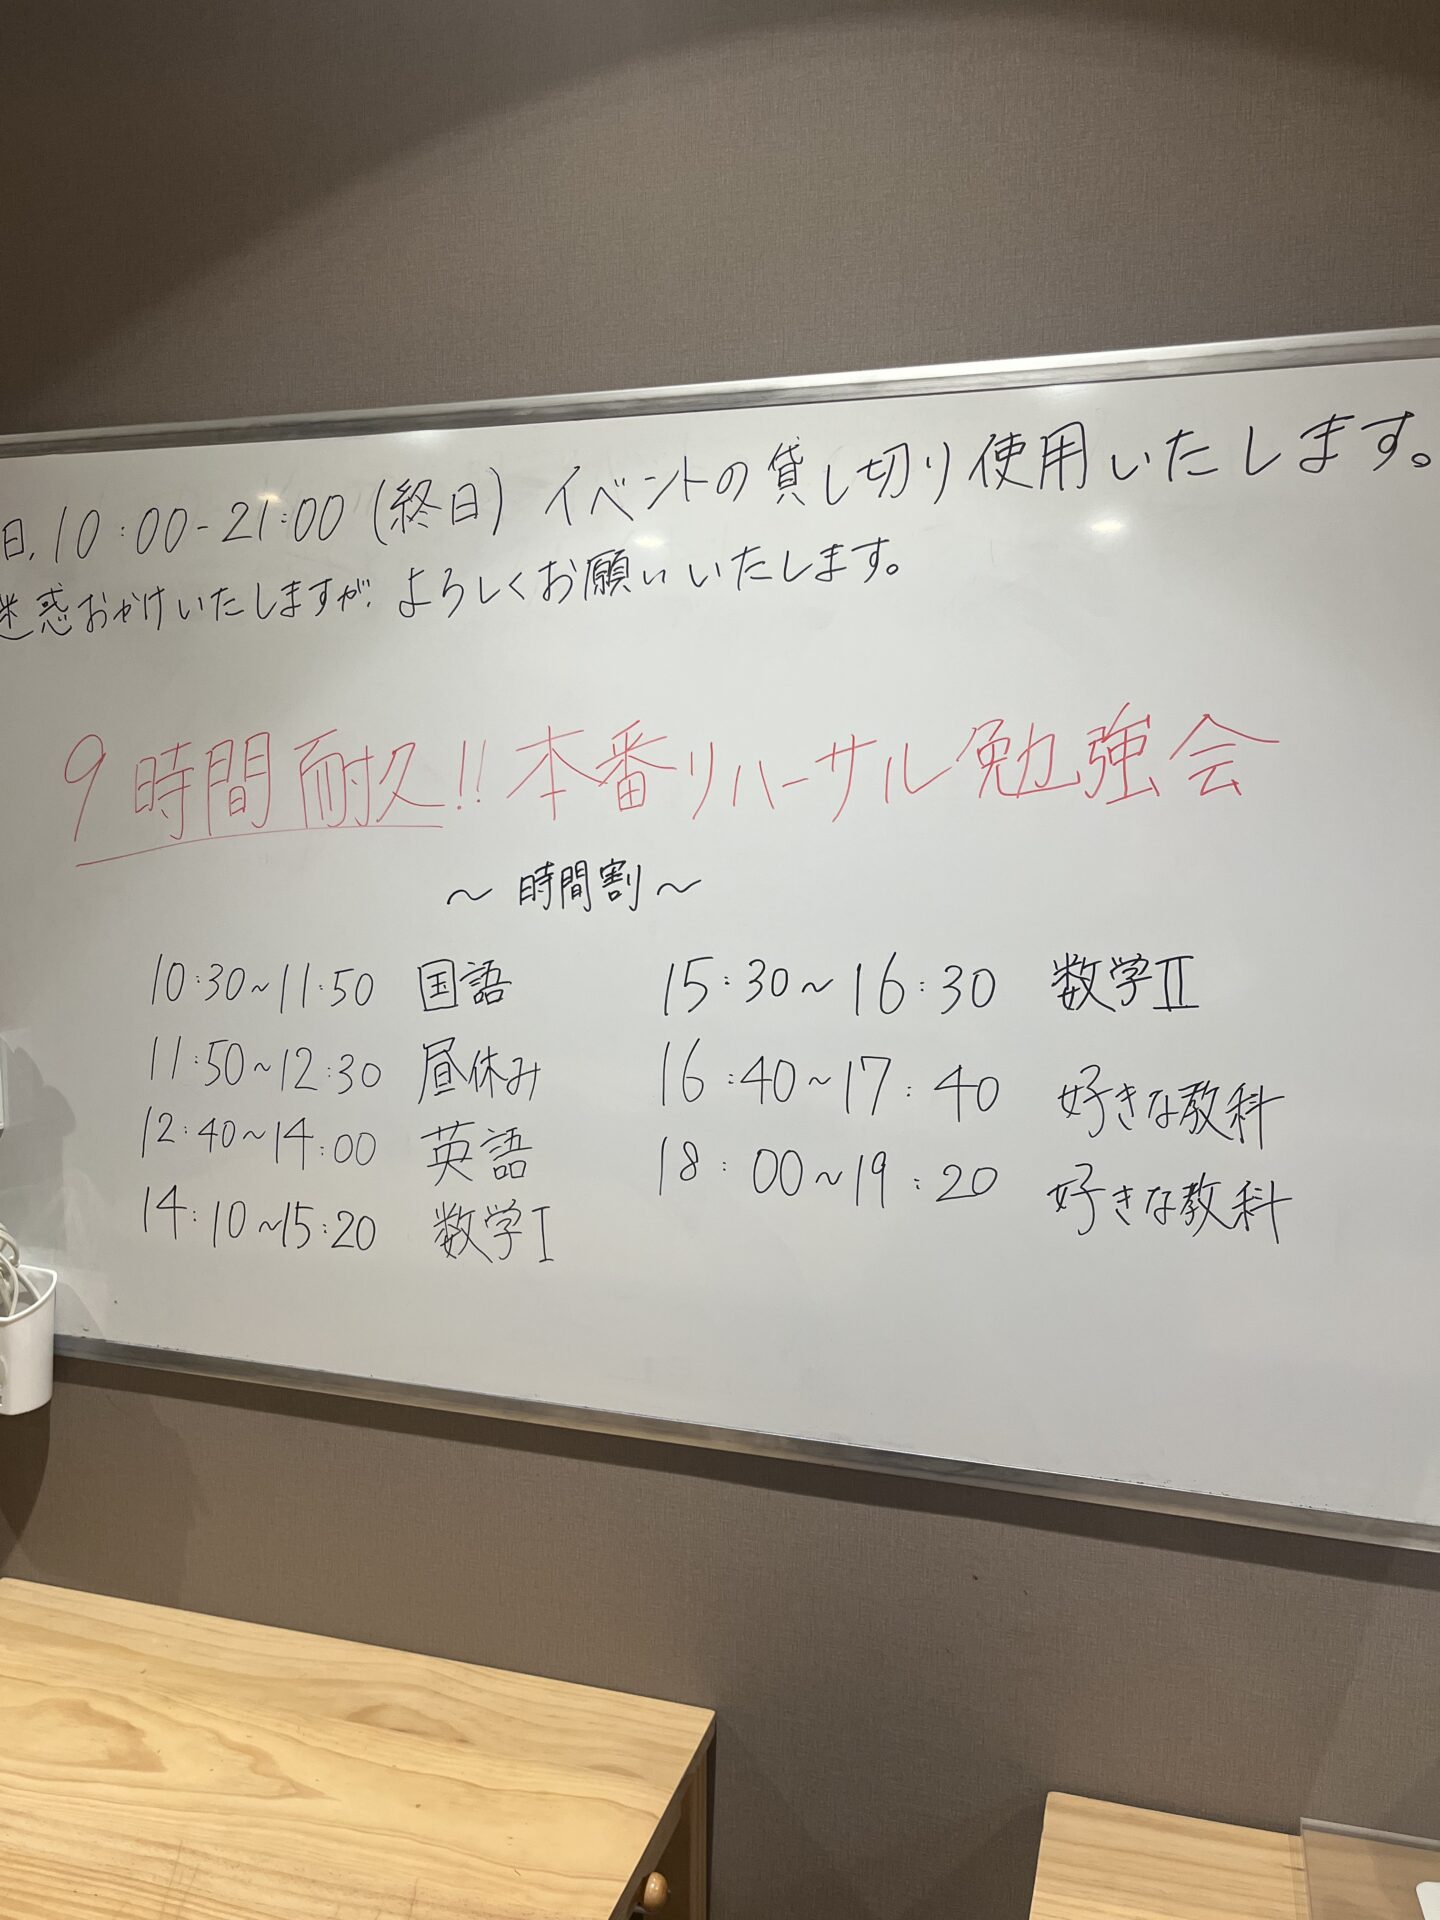 日,10:00-21:00(終日) イベントの貸し切り使用いたします。
迷惑おかけいたしますが、よろしくお願いいたします。
9時間耐久!!本番リハーサル勉強会
〜時間割〜
10:30〜11:50 国語
11:50〜12:30 昼休み
12:40〜14:00 英語
14:10〜15:20 数学I
15:30〜16:30 数学II
16:40〜17:40 好きな教科
18:00〜19:20 好きな教科